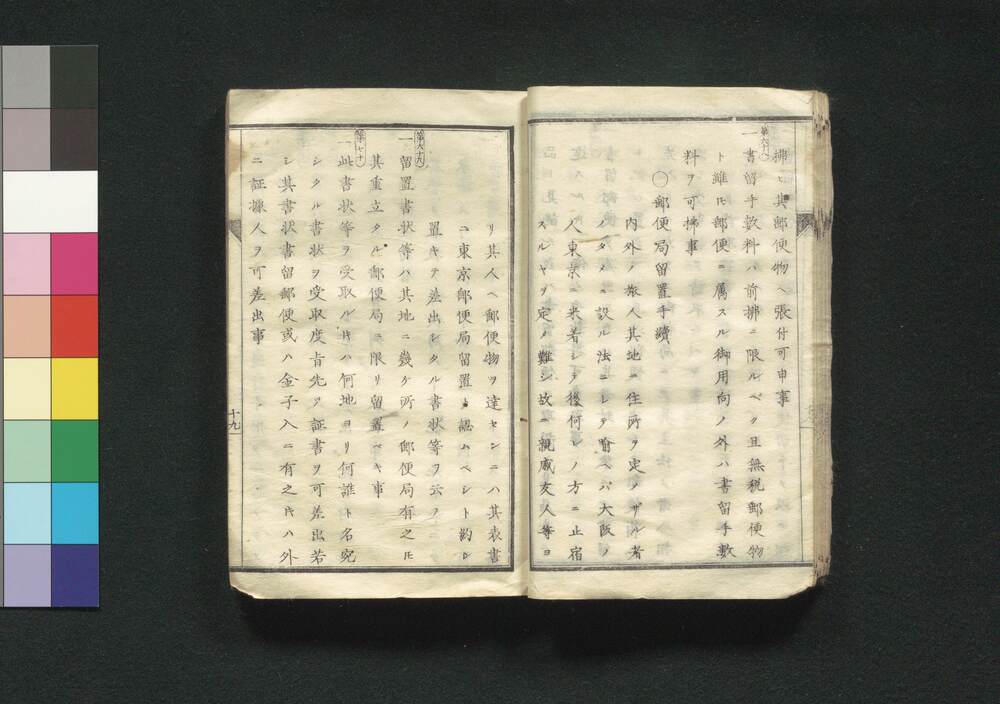 拂ヒ其郵便物ヘ張付可申事
第六十八
一書留手數料ハ前拂ニ限ルベク且無税郵便物
ト雖𪜈郵便ニ屬スル御用向ノ外ハ書留手數
料ヲ可拂事
○郵便局留置手續
内外ノ旅人其地ニ住所ヲ定メザル者
ノタメニ設ル法ニシテ喩ヘバ大阪ノ
人東京ニ來着シテ後何レノ方ニ止宿
スルヤヲ定メ難シ故ニ親戚友人等ヨ
リ其人ヘ郵便物ヲ達センニハ其表書
ニ東京郵便局留置ト認ムベシト約シ
置キテ差出シタル書状等ヲ云フ
第六十九
一留置書状等ハ其地ニ幾ケ所ノ郵便局有之𪜈
其重立タル郵便局ニ限リ留置ベキ事
第七十
一此書状等ヲ受取ル片ハ何地ヨリ何誰ト名宛
シタル書状ヲ受取度旨先ヅ証書ヲ可差出若
シ其書状書留郵便或ハ金子入ニ有之片ハ外
ニ証據人ヲ可差出事
十九